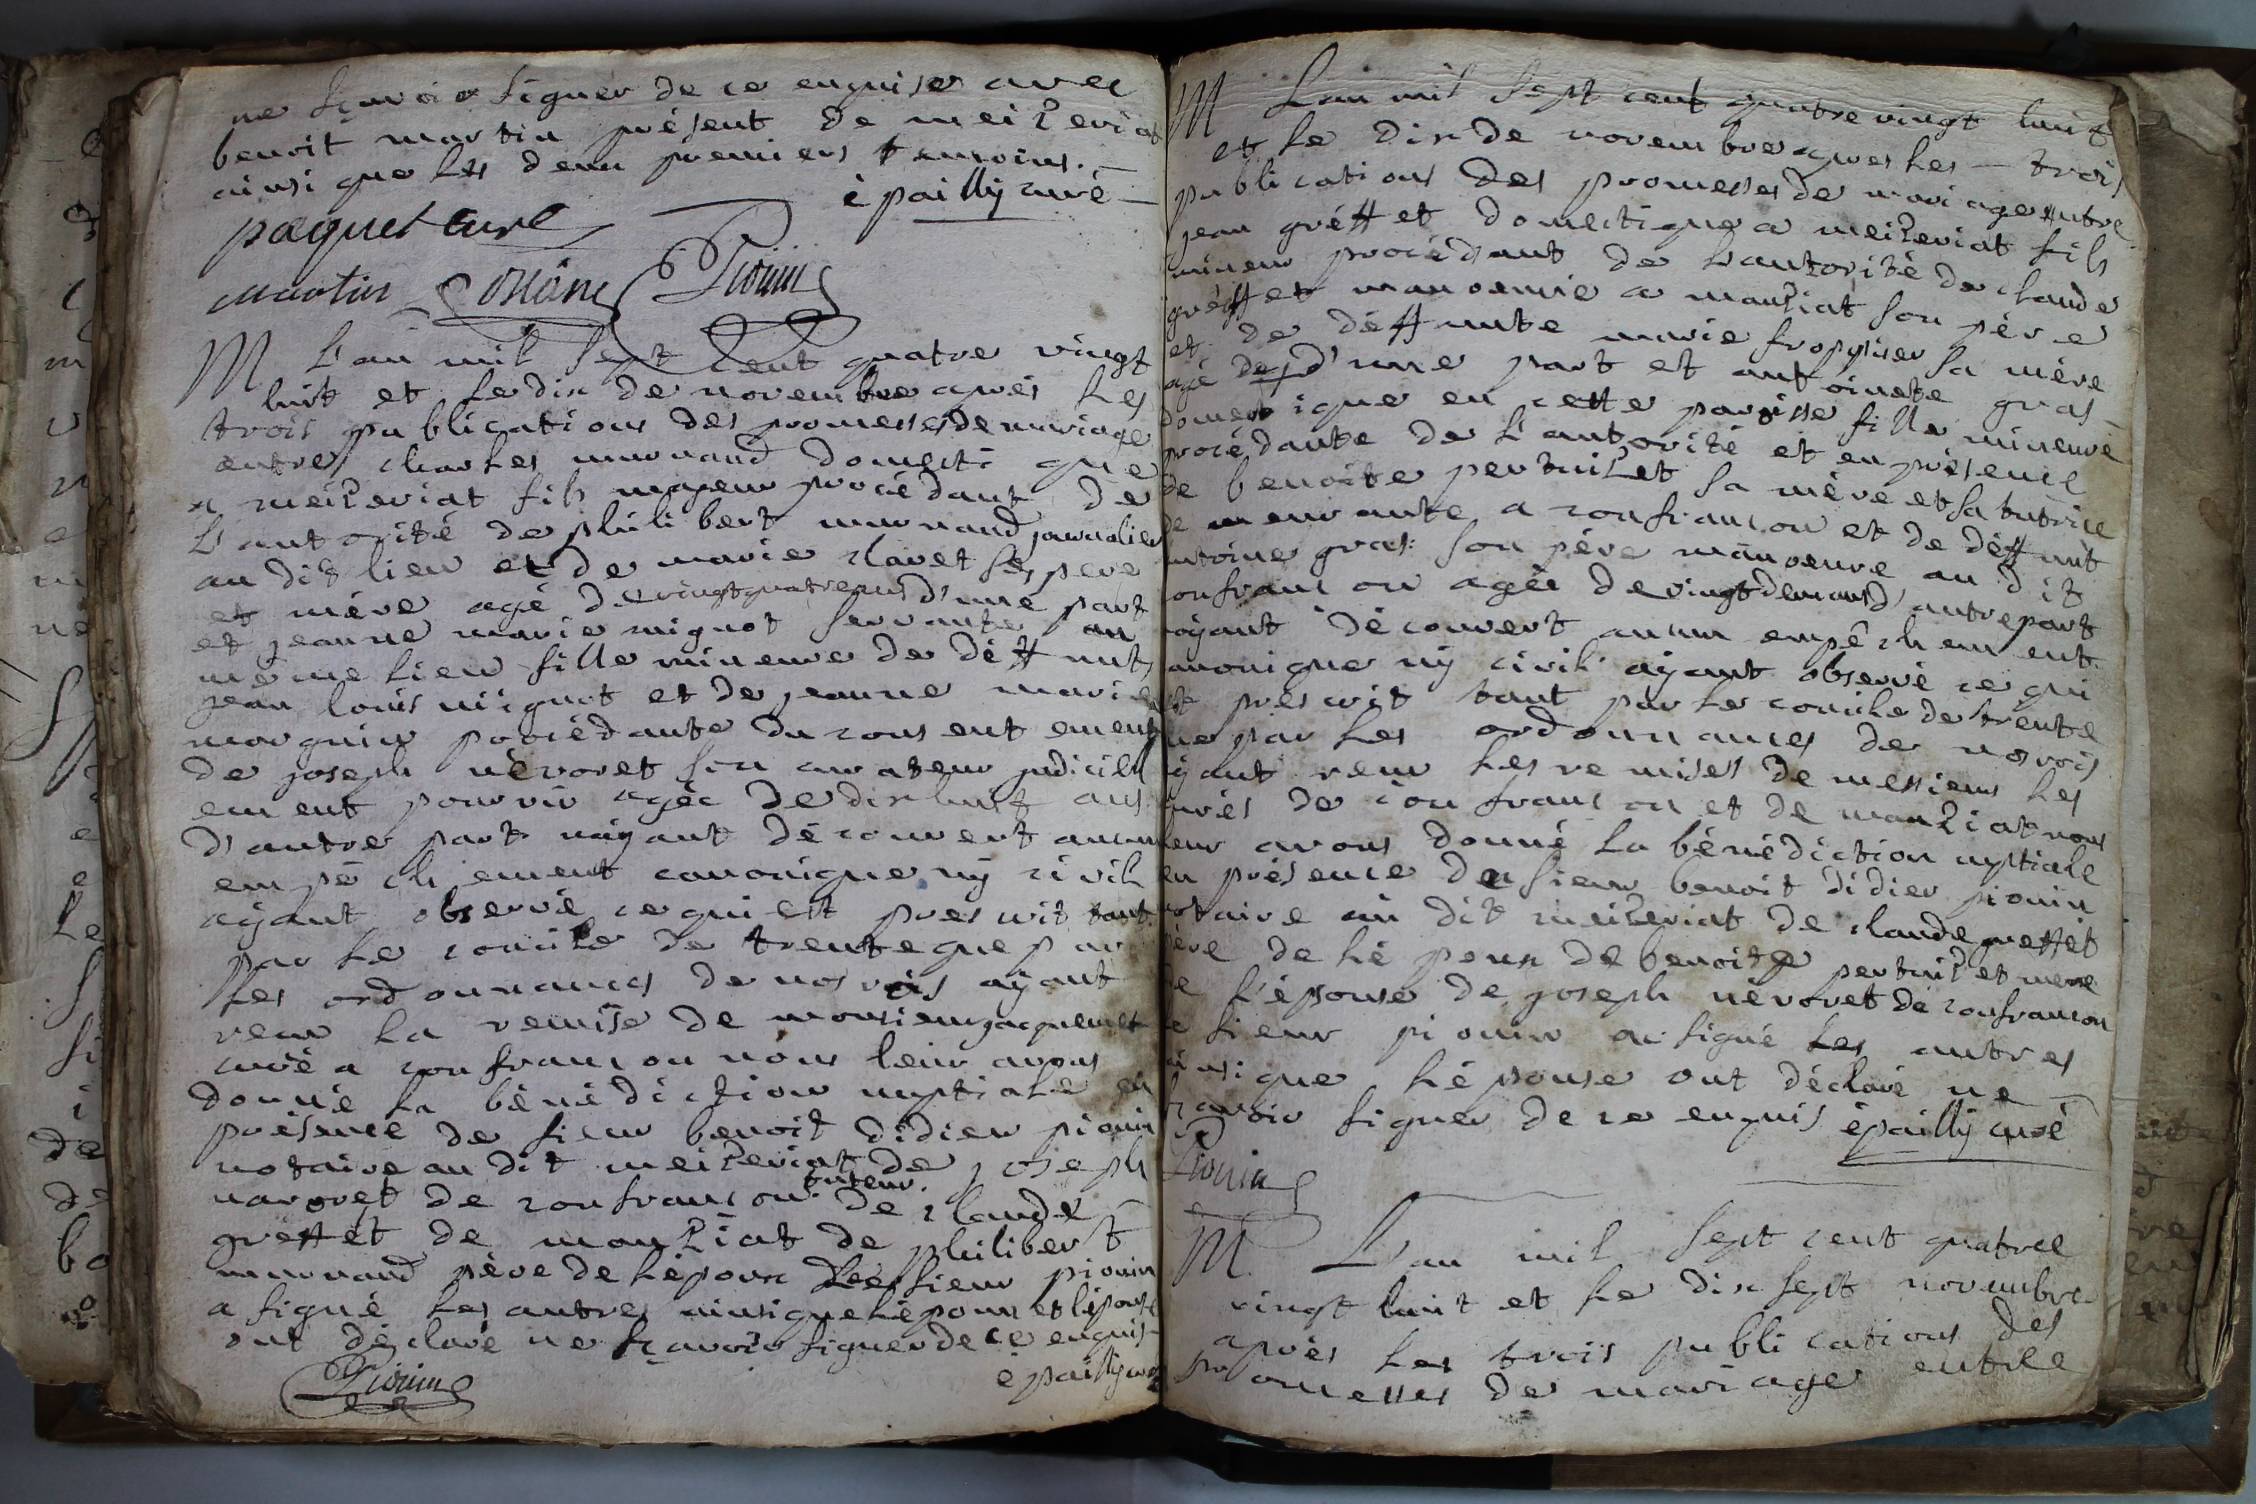 ne sçavoir signer de ce enquis avec
benoit martin présent de meizeriat
ainsi que les deux premiers temoins.
épailly curé
paquet curé
martin Piouin
M L'an mil sept cent quatre vingt
huit et le dix de novembre après les
trois publications des promesses de mariage
entre charles murnand domestique
a meizeriat fils majeur procédant de
l'autorité de philibert murnand journalier
au dit lieu et de marie clavet ses pere
et mère agé de vingt quatre ans d'une part
et jeanne marie mignot servante au
même lieu fille mineure de deffunts
jean louis mignot et de jeanne marie
morguin procédante du consentement
de joseph névoret son curateur judiciell
ement pourvu agée de dix huit ans
d'autre part n'ayant découvert aucun
empêchement canonique ny civil
ayant observé ce qui est prescrit tant
par le concile de trente que par
les ordonnances de nos rois ayant
reçu la remise de monsieur jacquemet
curé a confrançon nous leur avons
donné la bénédiction nuptiale en
présence de sieur benoit didier piouin
notaire au dit meizeriat de joseph
navoret de confrançon tuteur. de claude
greffet de manziat de philibert
murnand père de l'époux le sieur piouin
a signé les autres ainsi que l'époux et l'épouse
ont déclaré ne sçavoir signer de ce enquis
épailly curé
Piouin
M L'an mil sept cent quatre vingt huit
et le dix de novembre apres les trois
publications des promesses de mariage entre
jean gréffet domestique a meizeriat fils
mineur procédant de l'autorité de claude
gréffet manoeuvre a manziat son père
et de déffunte marie froppier sa mère
agé de d'une part et antoinete gras
domestique en cette paroisse fille mineure
procédante de l'autorité et en présence
de benoite pertuizet sa mère et sa tutrice
demeurante a confrançon et de déffunt
antoine gras son père manoeuvre au dit
confrançon agée de vingt deux ans d'autre part
n'ayant découvert aucun empêchement
canonique ny civil ayant observé ce qui
est prescrit tant par le concile de trente
que par les ordonnances de nos rois
ayant reçu les remises de messieurs les
curés de confrançon et de manziat nous
leur avons donné la bénédiction nuptiale
en présence du sieur benoit didier piouin
notaire au dit meizeriat de claude greffet
père de l'époux de benoite pertuizet mere
de l'épouse de joseph névoret de confrancon
le sieur piouin a signé les autres
ainsi que l'épouse ont déclaré ne
sçavoir signer de ce enquis épailly curé
Piouin
M. L'an mil sept cent quatre
vingt huit et le dix sept novembre
après les trois publications des
promesses de mariage entre